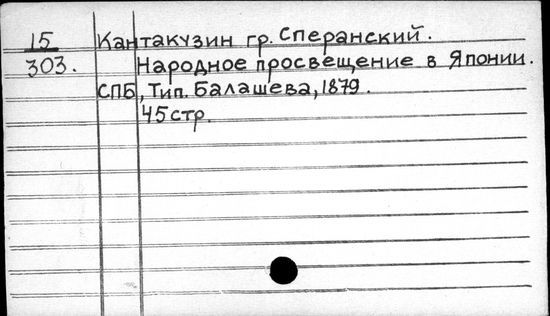 15 Кантакузин гр. Сперанский.
303. Народное просвещение в Японии.
СПБ, Тип. Балашева, 1879.
45 стр.